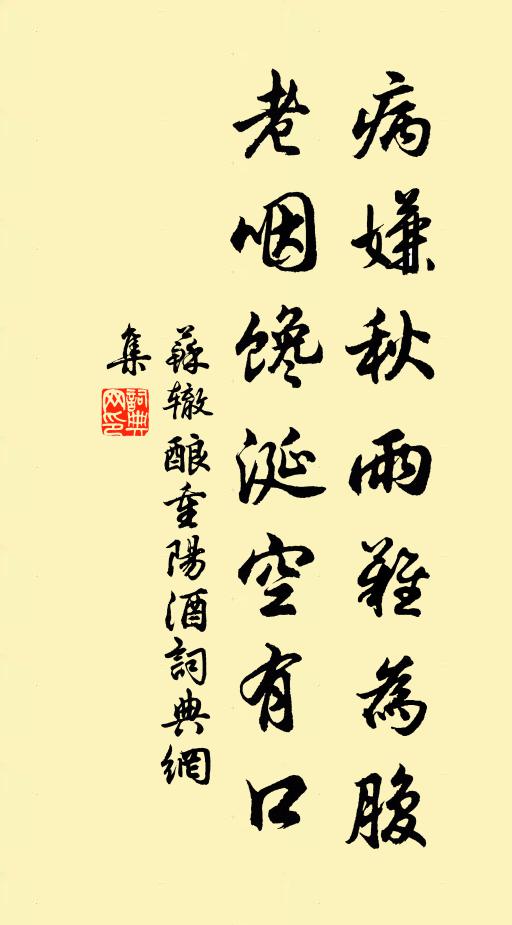 病嫌秋雨難為腹
老咽馋涎空有口
蘇辙酿重陽酒詞典網
集
詞典
网印